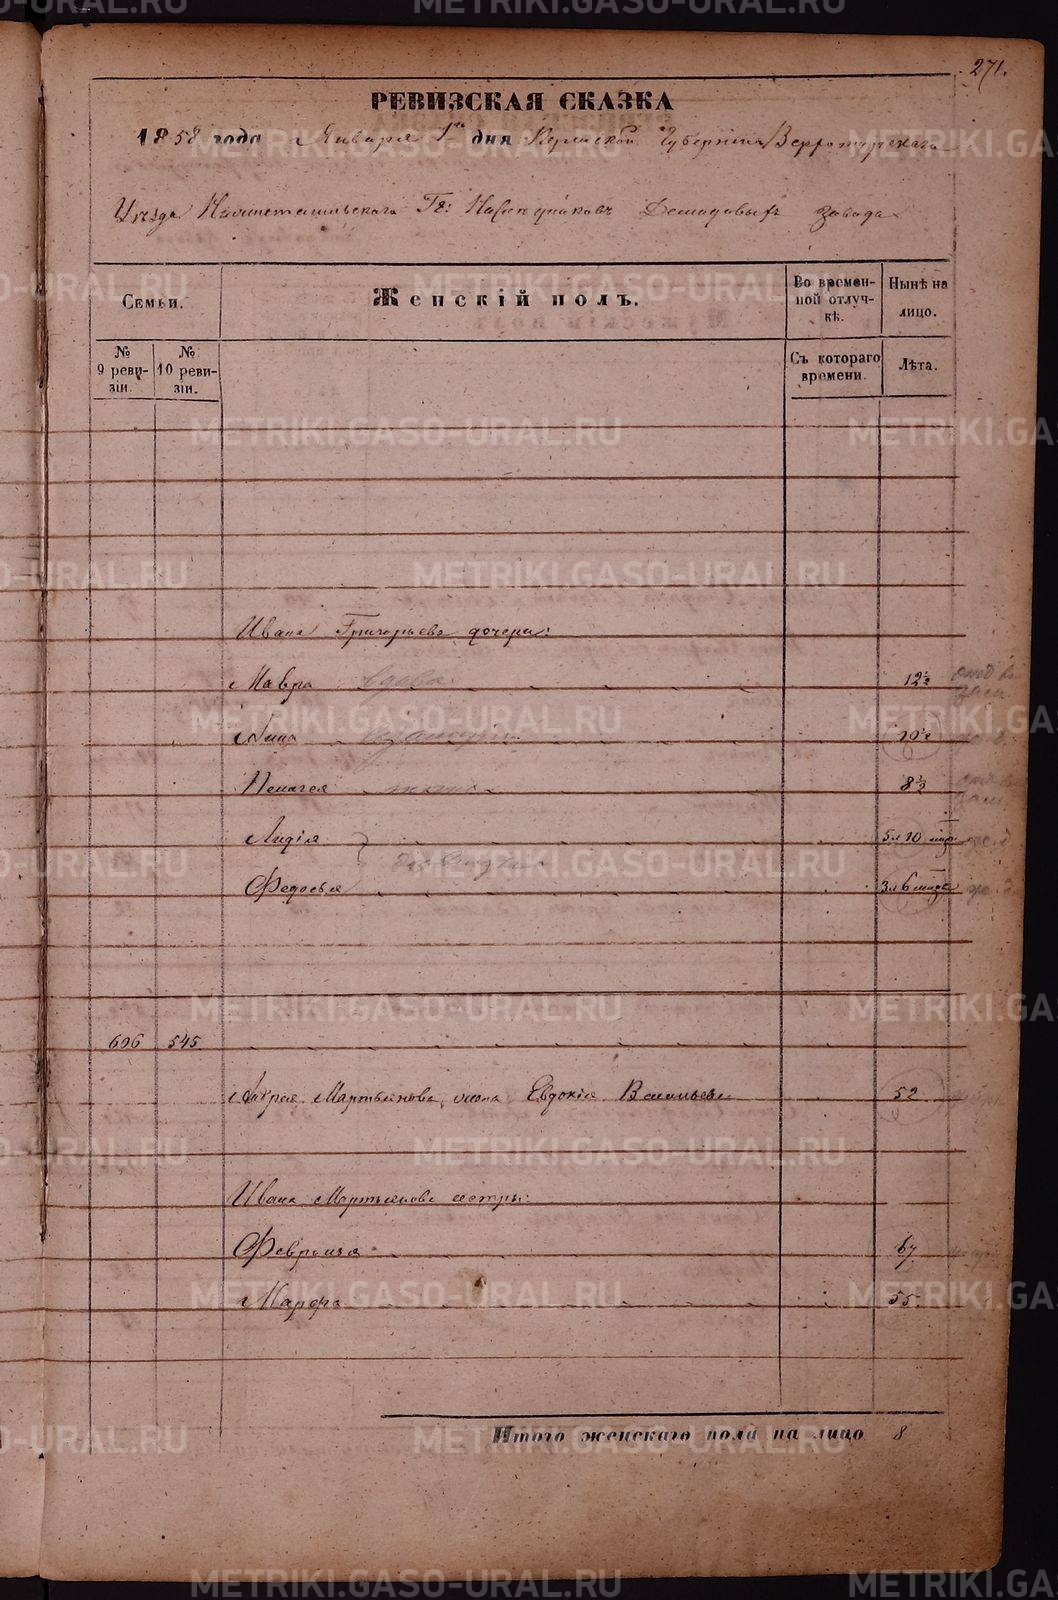 271.
РЕВИЗСКАЯ СКАЗКА
1858 года Января 1го дня Пермской Губернии Верхотурскаго
Уезда Нижнетагильскаго Гг: Наследниковъ Демидовыхъ завода
Семьи.
Женскій полъ.
Во времен-
ной отлуч-
кѣ.
Нынѣ на
лицо.
№
9 реви-
зіи.
№
10 реви-
зіи.
Съ котораго
времени.
Лѣта.
Ивана Григорьева дочери:
Мавра вдова 12½
Анна 10½
Пелагея 8½
Лидія 5 л 10
Федосья 3 л 6
606 545
Мартьянова жена Евдокія Васильева 52
Ивана Мартьянова сестры:
Февронья 67
Марфа 55
Итого женскаго пола на лицо 8
METRIKI.GASO-URAL.RU